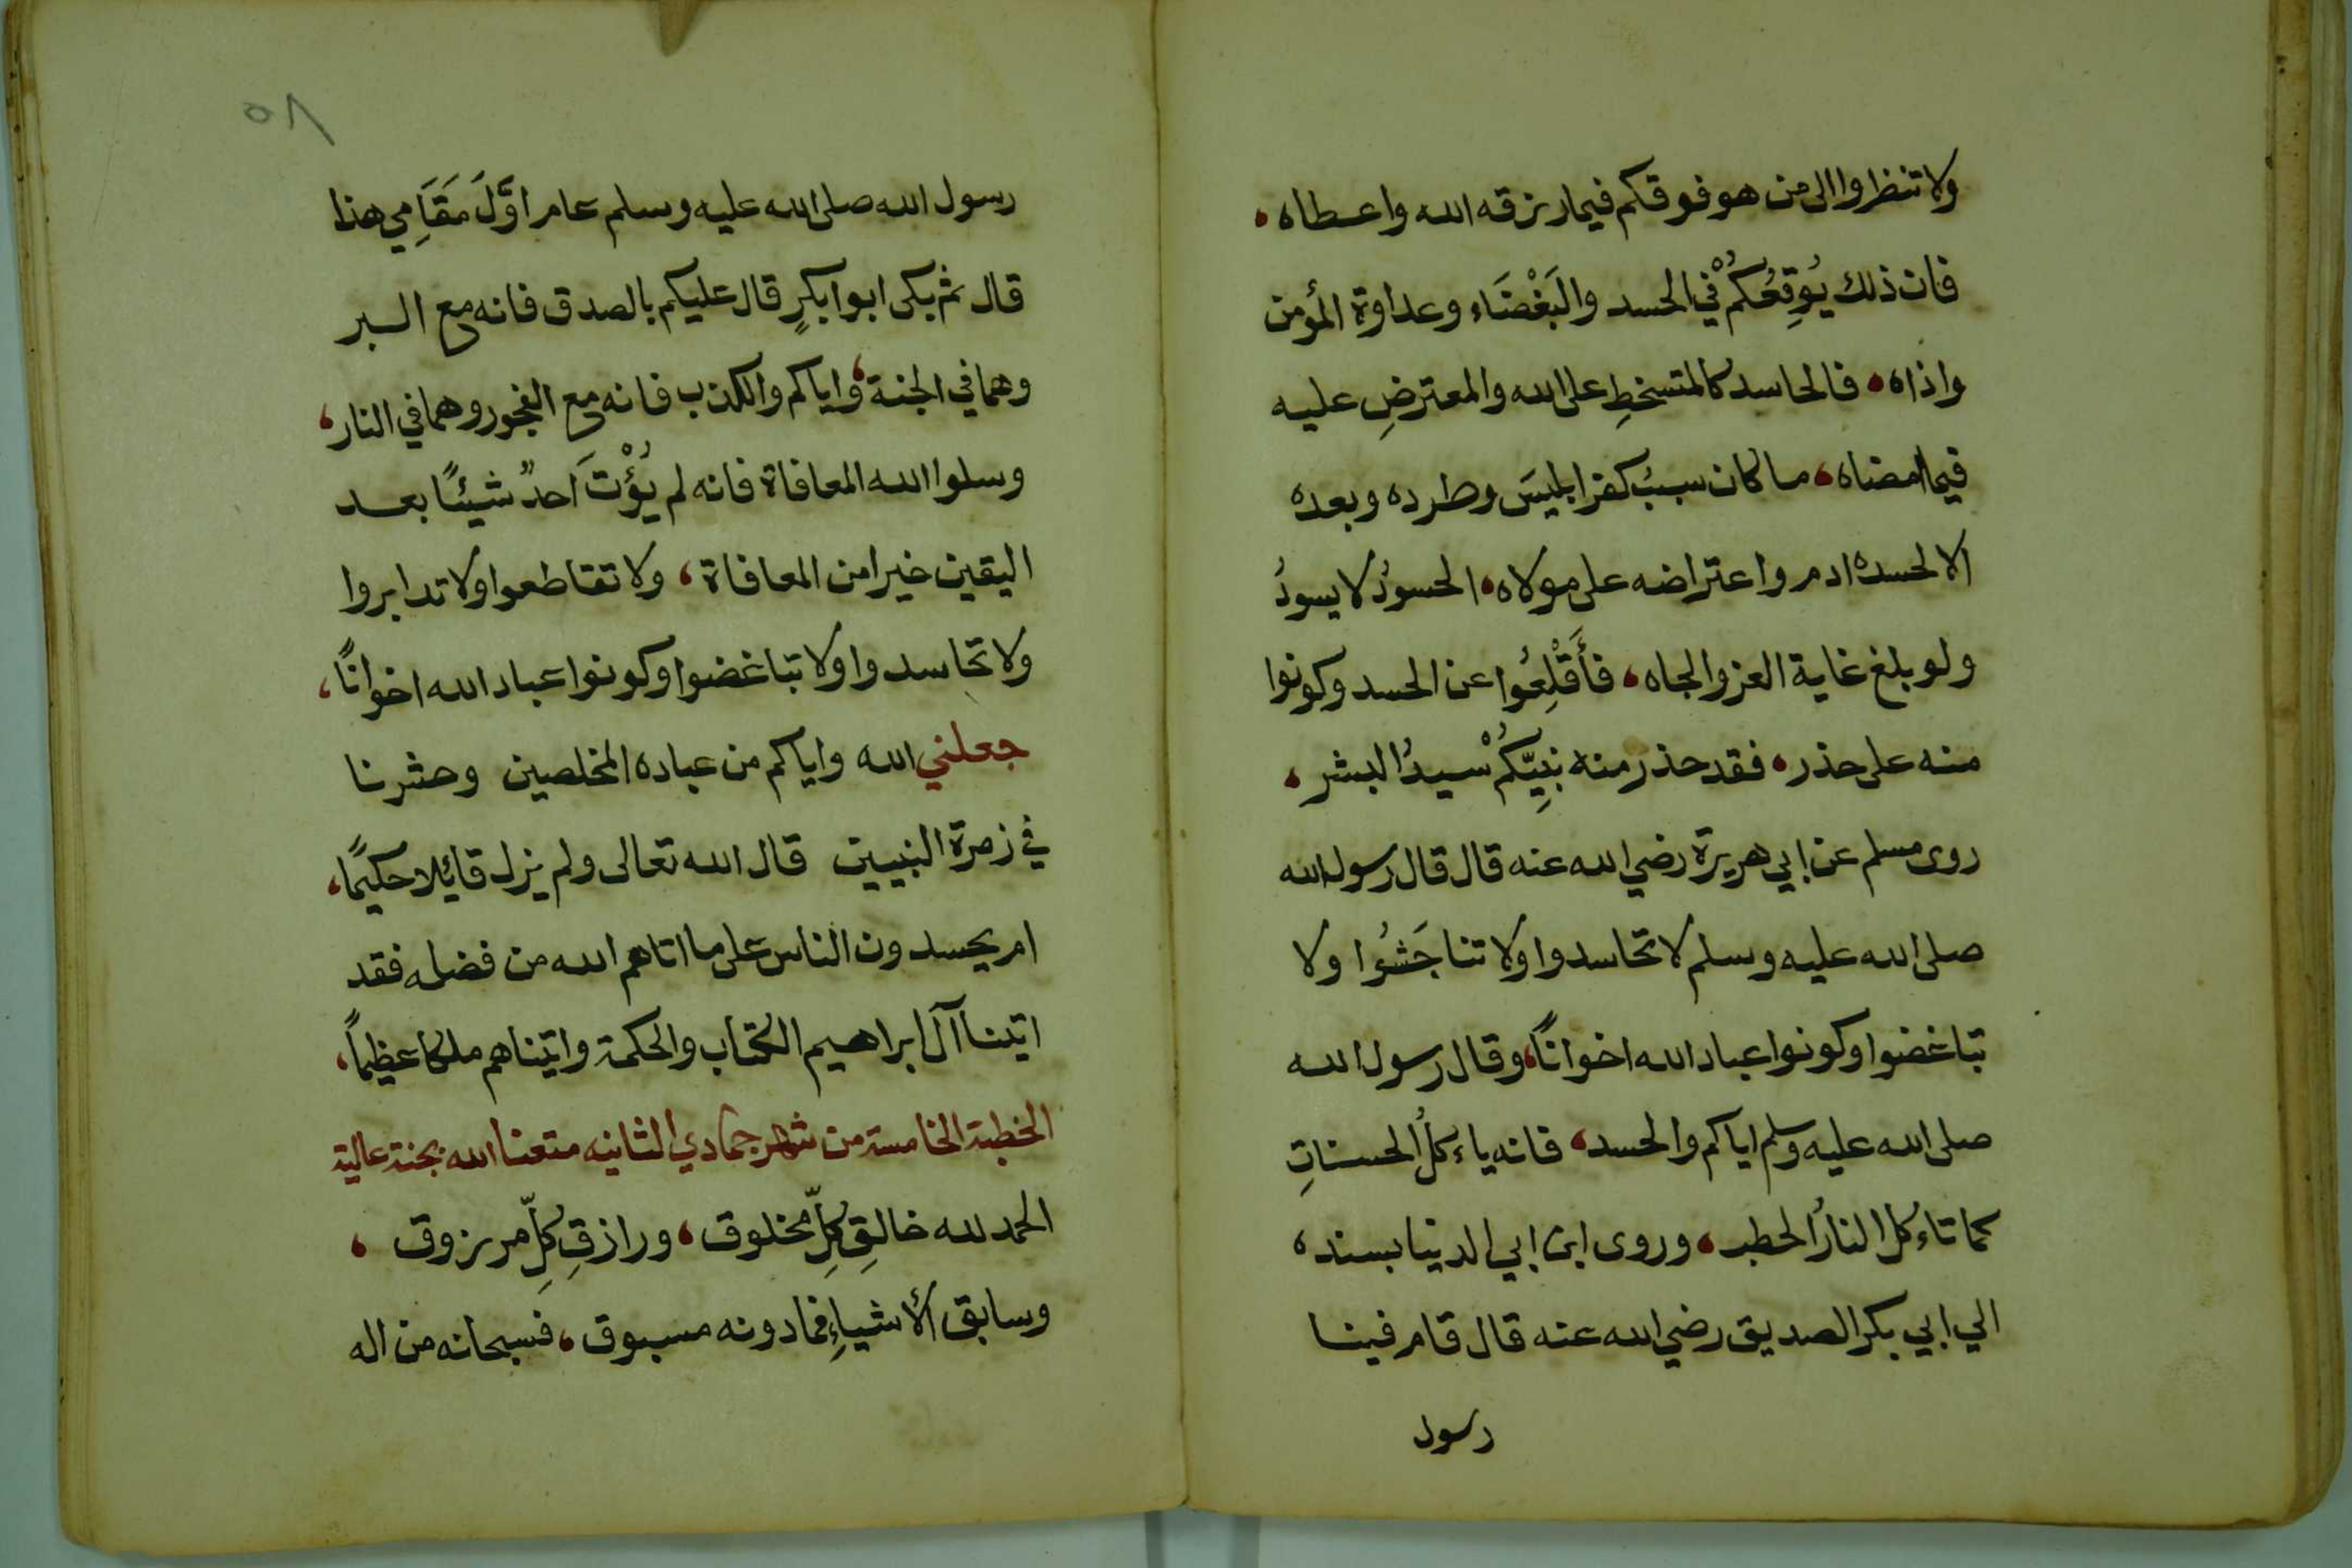 ولا تنظروا الى من هو فوقكم فيما رزقه الله واعطاه،
فان ذلك يُوقِعُكُمْ في الحسد والبَغْضَاء وعداوة المؤمن
واذاه، فالحاسد كالمتسخطِ على الله والمعترضِ عليه
فيما امضاه، ما كان سببُ كفر ابليسَ وطرده وبعده
الا لحسده ادم واعتراضه على مولاه، الحسودُ لا يسودُ
ولو بلغ غاية العز والجاه، فأَقْلِعُوا عن الحسد وكونوا
منه على حذر، فقد حذر منه نبِيّكُمْ سيدُ البشر،
روى مسلم عن ابي هريرة رضي الله عنه قال قال رسول الله
صلى الله عليه وسلم لا تحاسدوا ولا تناجَشُوا ولا
تباغضوا وكونوا عباد الله اخوانًا، وقال رسول الله
صلى الله عليه وسلم اياكم والحسد، فانه ياءكلُ الحسناتِ
كما تاءكل النارُ الحطب، وروى ابن ابي الدنيا بسنده
الي ابي بكر الصديق رضي الله عنه قال قام فينا
رسول
٥٨
رسول الله صلى الله عليه وسلم عام اوَّلَ مَقَامِي هذا
قال ثم بكى ابوا بكرٍ قال عليكم بالصدق فانه مع البر
وهما في الجنة، واياكم والكذب فانه مع الفجور وهما في النار،
وسلوا الله المعافاة فانه لم يُؤْتَ احدٌ شيئًا بعد
اليقين خيرا من المعافاة، ولا تقاطعوا ولا تدابروا
ولا تحاسدوا ولا تباغضوا وكونوا عباد الله اخوانًا،
جعلني الله واياكم من عباده المخلصين وحشرنا
في زمرة النبيين قال الله تعالى ولم يزل قائلا حكيمًا،
ام يحسدون الناس على ما اتاهم الله من فضله فقد
اتينا آل ابراهيم الكتاب والحكمة واتيناهم ملكا عظيماً،
الخطبة الخامسة من شهر جمادي الثانيه متعنا الله بجنة عالية
الحمد لله خالقِ كلِّ مخلوق، ورازقِ كلِّ مرزوق،
وسابق الأشياءِ فما دونه مسبوق، فسبحانه من اله